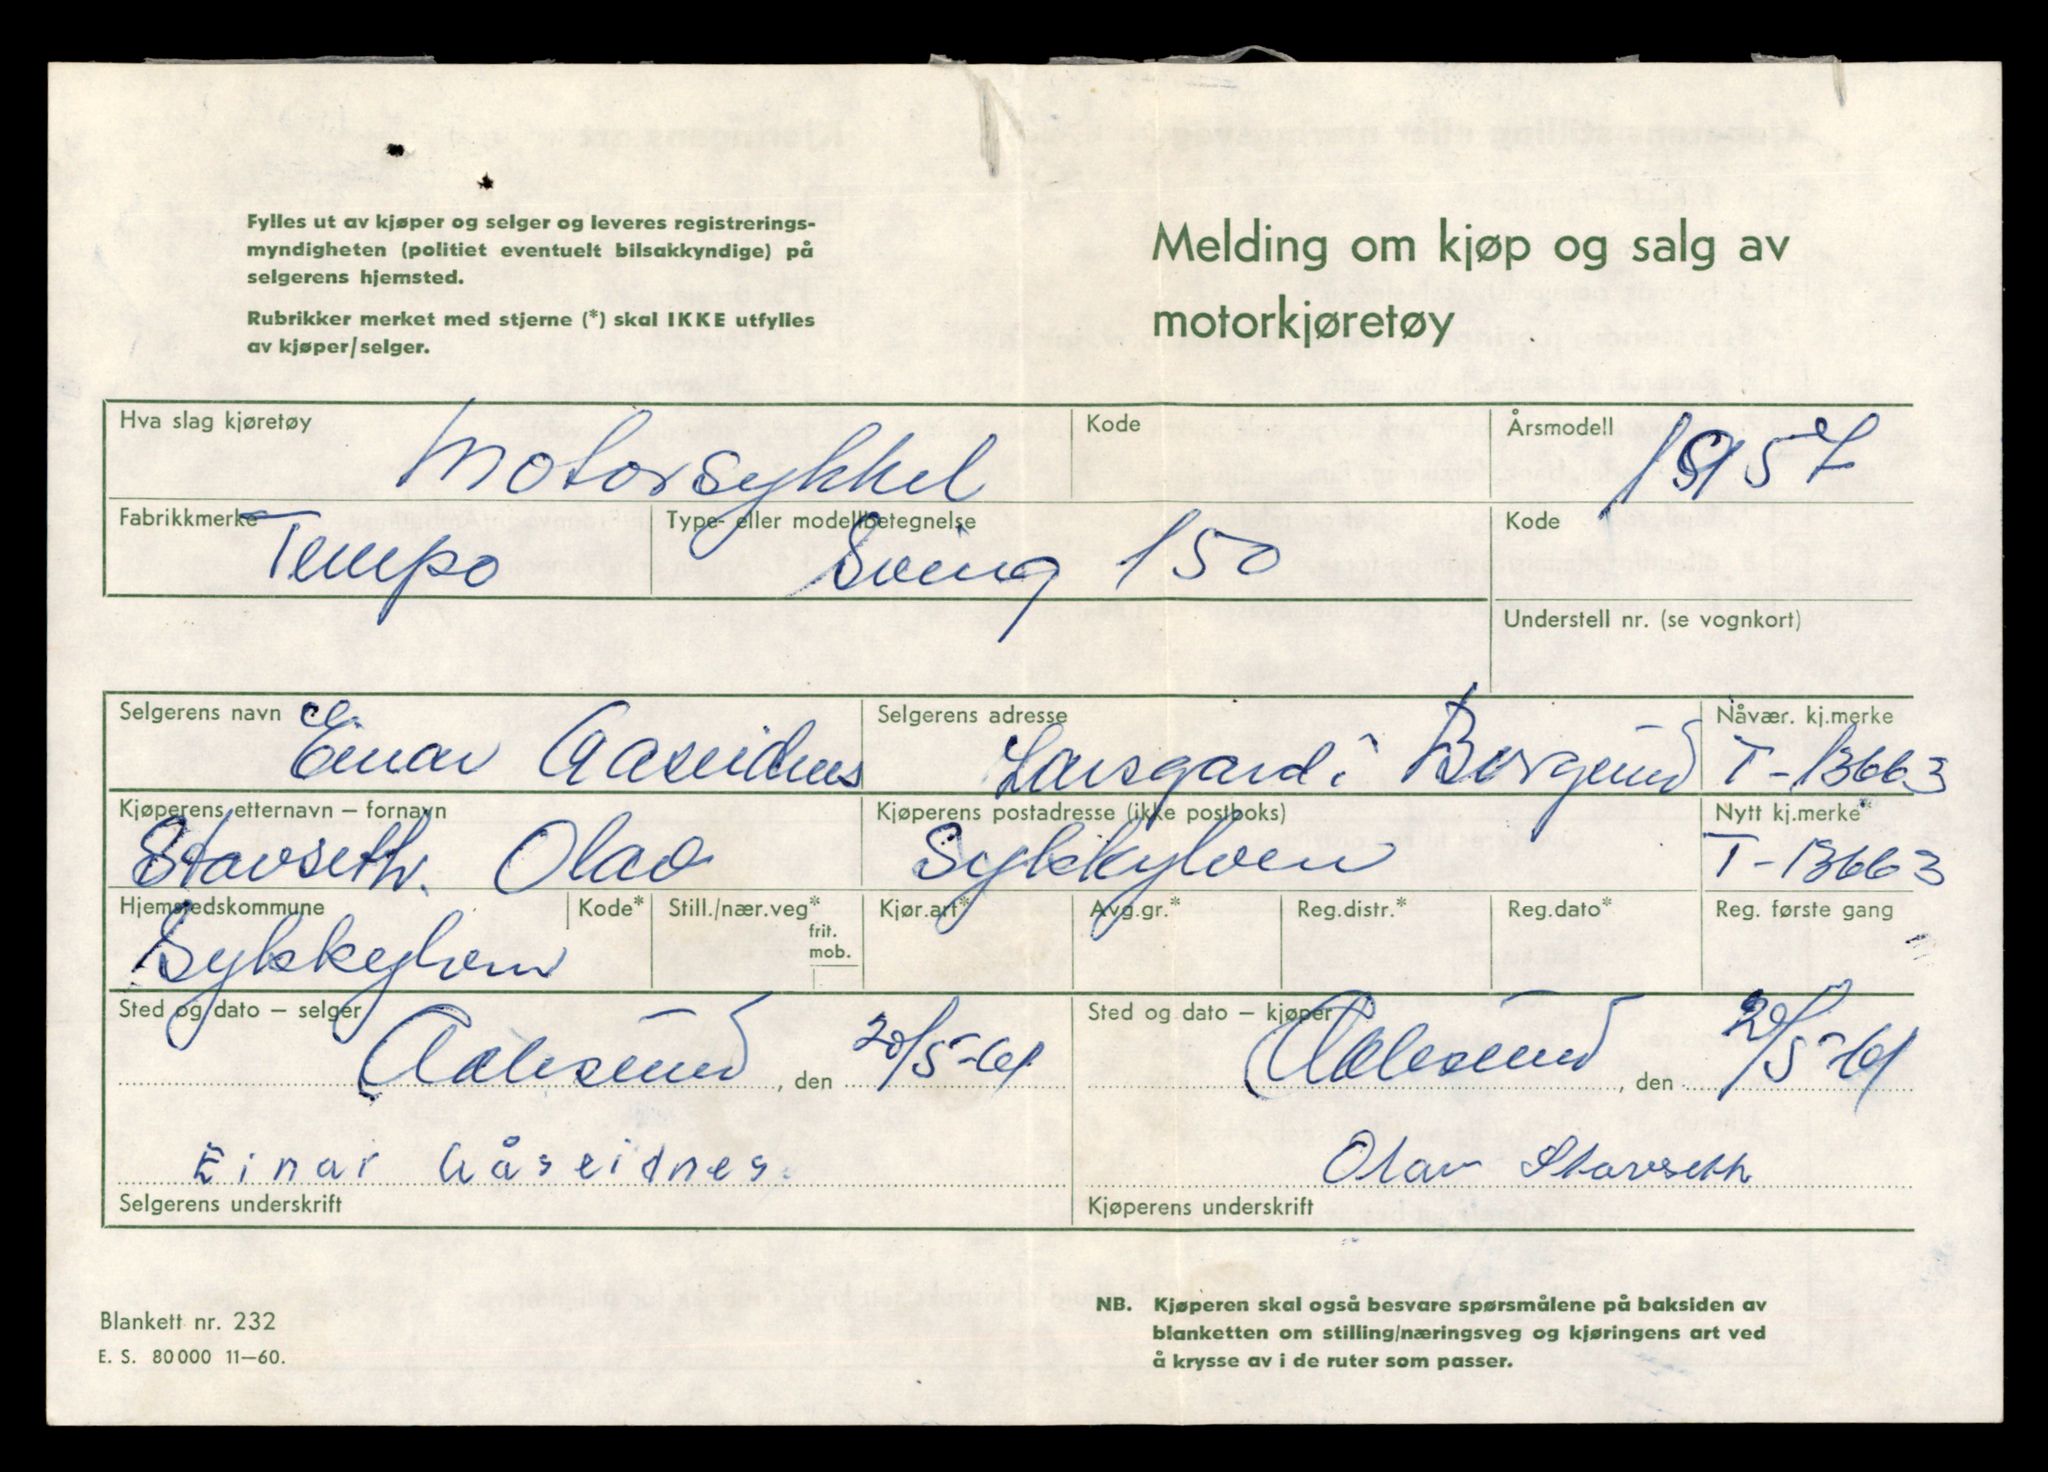 Fylles ut av kjøper og selger og leveres registrerings-
myndigheten (politiet eventuelt bilsakkyndige) på
selgerens hjemsted.
Rubrikker merket med stjerne (*) skal IKKE utfylles
av kjøper/selger.
Melding om kjøp og salg av
motorkjøretøy
Hva slag kjøretøy Motorsykkel Kode Årsmodell 1957
Fabrikkmerke Tempo Type- eller modellbetegnelse Swing 150 Kode
Understell nr. (se vognkort)
Selgerens navn Einar Aaseidnes Selgerens adresse Larsgard i Borgund Nåvær. kj.merke T-13663
Kjøperens etternavn – fornavn Stavseth, Olav Kjøperens postadresse (ikke postboks) Sykkylven Nytt kj.merke* T-13663
Hjemstedskommune Sykkylven Kode* Still./nær.veg* frit. mob. Kjør.art* Avg.gr.* Reg.distr.* Reg.dato* Reg. første gang
Sted og dato – selger Aalesund, den 20/5-61 Sted og dato – kjøper Aalesund, den 20/5-61
Einar Aåseidnes. Olav Stavseth
Selgerens underskrift Kjøperens underskrift
Blankett nr. 232
E. S. 80 000 11–60.
NB. Kjøperen skal også besvare spørsmålene på baksiden av
blanketten om stilling/næringsveg og kjøringens art ved
å krysse av i de ruter som passer.